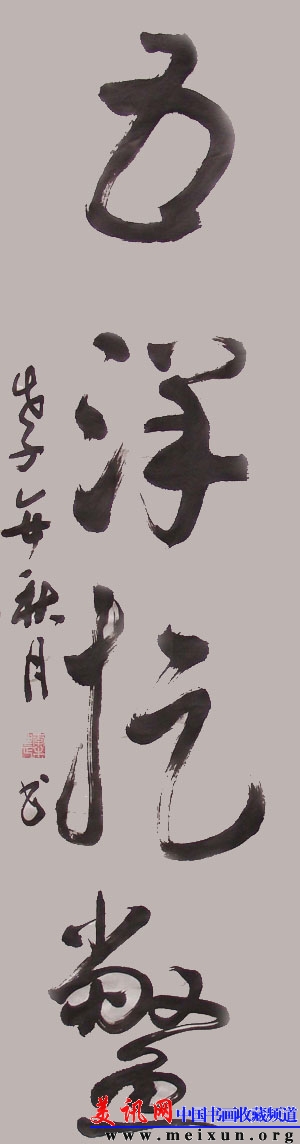 五洋捉鳖
戊子年秋月
书
美讯网 中国书画收藏频道
www.meixun.org